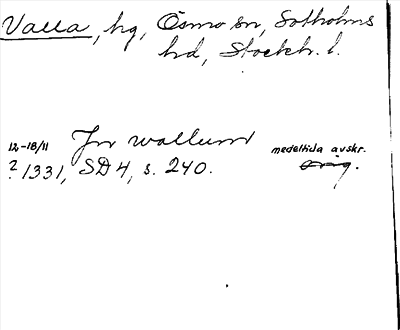 Valla, hg, Ösmo sn, Sotholms
hd, Stockh. l.
12-18/11 Jn wallum medeltida avskr.
? 1331, SD 4, s. 240. orig.